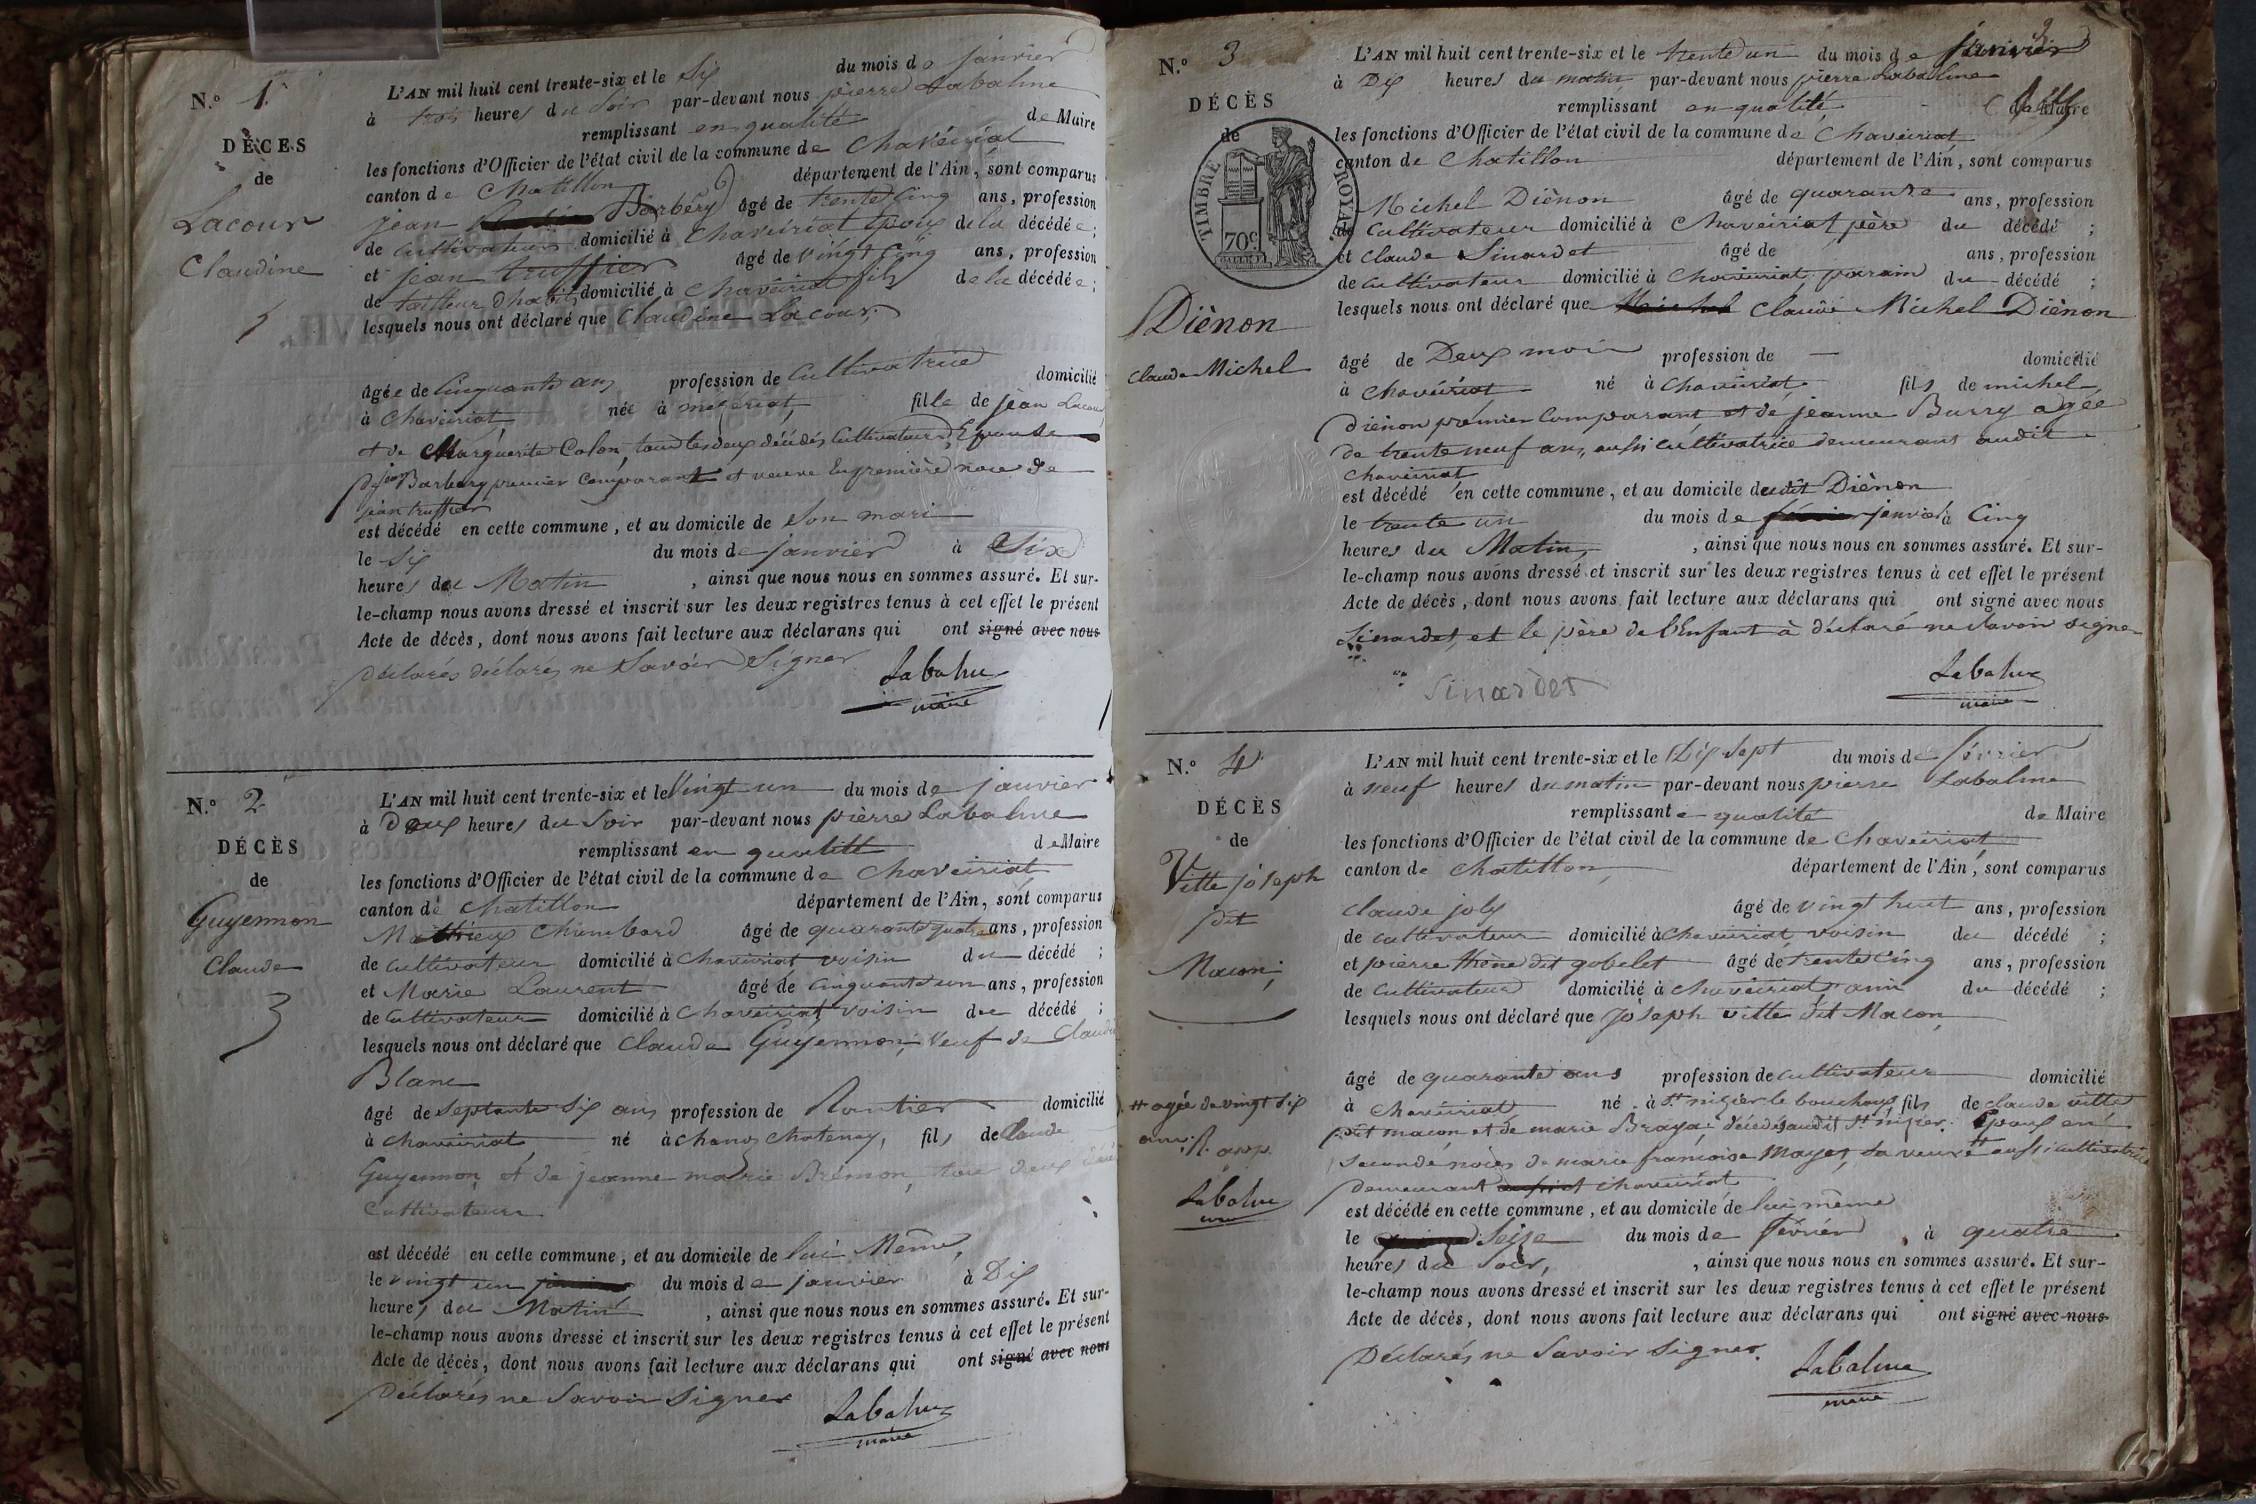 N.º 1.
DÉCES
de
Lacour
Claudine
L'AN mil huit cent trente-six et le Six du mois de janvier
à trois heures du Soir par-devant nous pierre Labalme
remplissant en qualité de Maire
les fonctions d'Officier de l'état civil de la commune de Chaveiriat
canton de Chatillon département de l'Ain, sont comparus
jean Barbery âgé de trente cinq ans, profession
de Cultivateur domicilié à Chaveiriat époux de la décédée;
et jean truffier âgé de vingt cinq ans, profession
de tailleur d'habit domicilié à Chaveiriat fils de la décédée;
lesquels nous ont déclaré que Claudine Lacour.
âgée de Cinquante ans profession de Cultivatrice domicilié
à Chaveiriat née à mezeriat, fille de jean Lacour
et de Marguerite Colon, tous les deux décédés Cultivateurs, Epouse
de jean Barbery premier Comparant et veuve En première noce de
jean truffier
est décédé en cette commune, et au domicile de Son mari
le Six du mois de janvier à Six
heures du Matin, ainsi que nous nous en sommes assuré. Et sur-
le-champ nous avons dressé et inscrit sur les deux registres tenus à cet effet le présent
Acte de décès, dont nous avons fait lecture aux déclarans qui ont signé avec nous
déclarés déclarés ne Savoir Signer
Labalme
maire
N.º 2
DÉCÈS
de
Guyennon
Claude
L'AN mil huit cent trente-six et le Vingt un du mois de janvier
à Deux heures du Soir par-devant nous pierre Labalme
remplissant en qualité de Maire
les fonctions d'Officier de l'état civil de la commune de Chaveiriat
canton de Chatillon département de l'Ain, sont comparus
Mathieux Chambard âgé de quarante quatre ans, profession
de Cultivateur domicilié à Chaveiriat voisin du décédé;
et Marie Laurent âgé de Cinquante un ans, profession
de Cultivateur domicilié à Chaveiriat voisin du décédé;
lesquels nous ont déclaré que Claude Guyennon, Veuf de Claudine
Blanc
âgé de Septante Six ans profession de Rantier domicilié
à Chaveiriat né à Chanoz Chatenay, fils de Claude
Guyennon et de jeanne marie Brémon, tous deux
Cultivateurs
est décédé en cette commune, et au domicile de lui Même,
le vingt un du mois de janvier à Dix
heures du Matin, ainsi que nous nous en sommes assuré. Et sur-
le-champ nous avons dressé et inscrit sur les deux registres tenus à cet effet le présent
Acte de décès, dont nous avons fait lecture aux déclarans qui ont signé avec nous
Déclarés ne Savoir Signer
Labalme
maire
N.º 3
DÉCÈS
de
TIMBRE ROYAL
70c
Diènon
Claude Michel
L'AN mil huit cent trente-six et le trente un du mois de janvier
à Dix heures du matin par-devant nous pierre Labalme
remplissant en qualité de Maire
les fonctions d'Officier de l'état civil de la commune de Chaveiriat
canton de Chatillon département de l'Ain, sont comparus
Michel Diènon âgé de quarante ans, profession
de Cultivateur domicilié à Chaveiriat père du décédé;
et Claude Sinardet âgé de ans, profession
de Cultivateur domicilié à Chaveiriat, parain du décédé;
lesquels nous ont déclaré que Michel Claude Michel Diènon
âgé de Deux mois profession de — domicilié
à Chaveiriat né à Chaveiriat fils de michel
Diènon premier Comparant et de jeanne Burry agée
de trente neuf ans, aussi cultivatrice demeurant audit
Chaveiriat
est décédé en cette commune, et au domicile dudit Diènon
le trente un du mois de février janvier à Cinq
heures du Matin, ainsi que nous nous en sommes assuré. Et sur-
le-champ nous avons dressé et inscrit sur les deux registres tenus à cet effet le présent
Acte de décès, dont nous avons fait lecture aux déclarans qui ont signé avec nous
Sinardet, et le père de l'Enfant à déclaré ne Savoir signer
Sinardet
Labalme
maire
N.º 4
DÉCÈS
de
Vitte joseph
dit
Macon;
agée de vingt Six
ans. R. app.
Labalme
L'AN mil huit cent trente-six et le Dix Sept du mois de février
à neuf heures du matin par-devant nous pierre Labalme
remplissant en qualité de Maire
les fonctions d'Officier de l'état civil de la commune de Chaveiriat
canton de Chatillon, département de l'Ain, sont comparus
Claude joly âgé de vingt huit ans, profession
de Cultivateur domicilié à Chaveiriat, voisin du décédé;
et pierre thène dit gobelet âgé de trente cinq ans, profession
de Cultivateur domicilié à Chaveiriat ami du décédé;
lesquels nous ont déclaré que joseph vitte dit Macon,
âgé de quarante ans profession de Cultivateur domicilié
à Chaveiriat né à St nizier le bouchoux fils de claude vitte
dit macon et de marie Braya décédés audit St nizier. Epoux en
Secondé noces de marie framçoise Mayet, sa veuve aussi cultivatrice
demeurant Chaveiriat
est décédé en cette commune, et au domicile de lui même
le Seize du mois de février à quatre
heures du Soir, ainsi que nous nous en sommes assuré. Et sur-
le-champ nous avons dressé et inscrit sur les deux registres tenus à cet effet le présent
Acte de décès, dont nous avons fait lecture aux déclarans qui ont signé avec nous
Déclarés ne Savoir Signer.
Labalme
maire